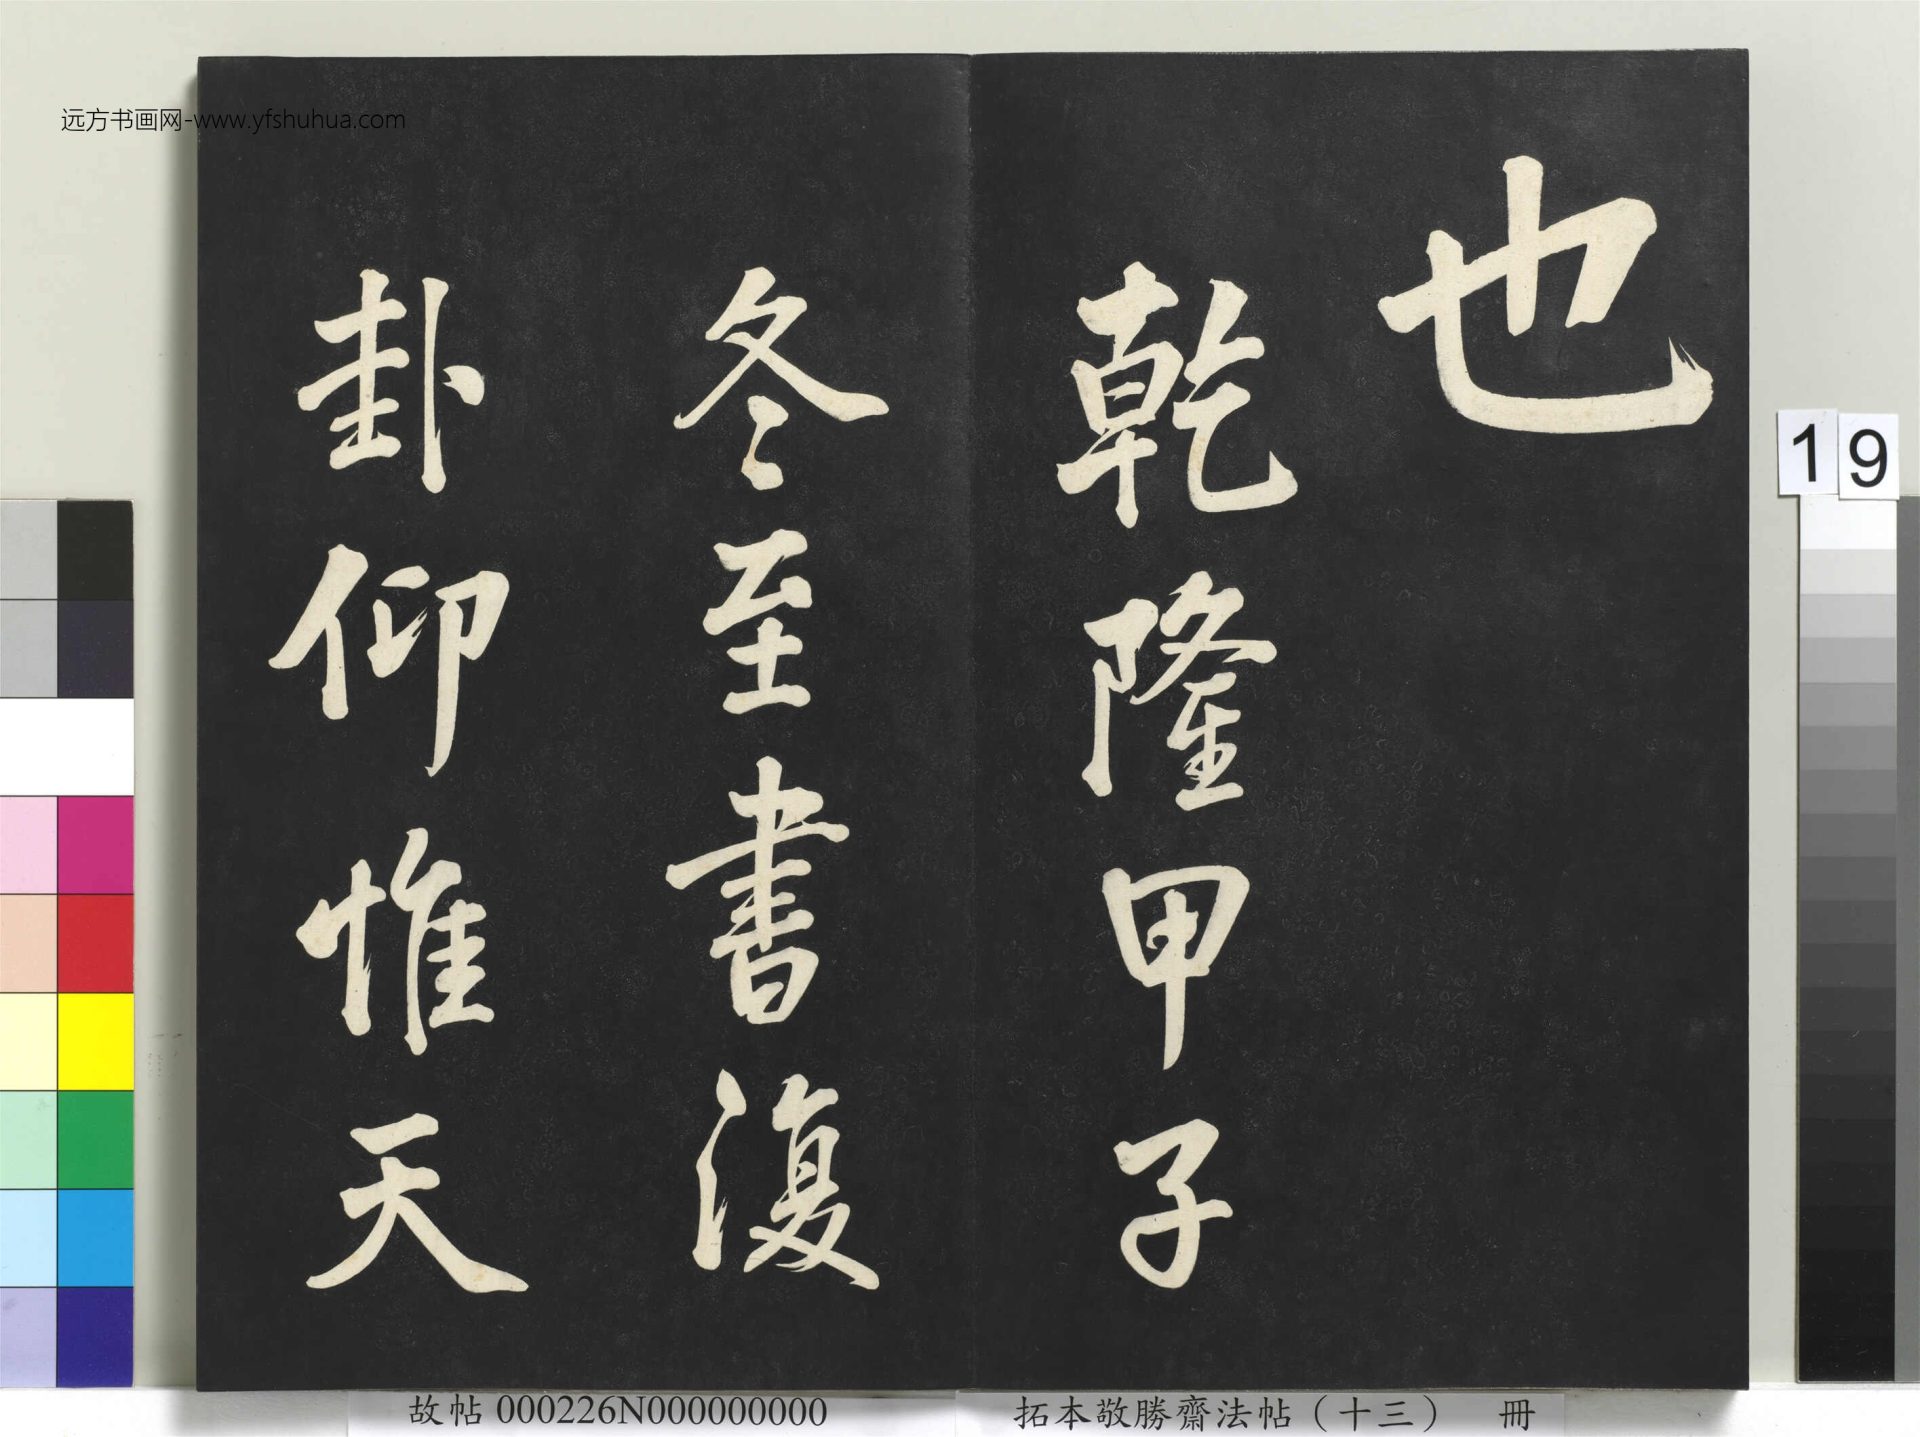 远方书画网-www.yfshuhua.com
也
乾隆甲子
冬至書復
卦仰惟天
19
故帖 000226N000000000
拓本敬勝齋法帖（十三） 冊